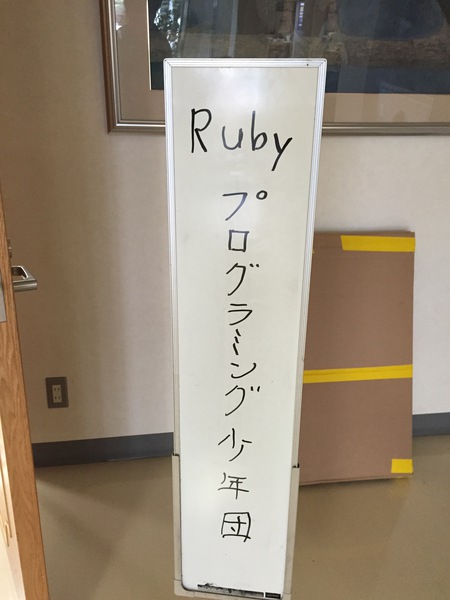 Ruby
プログラミング少年団